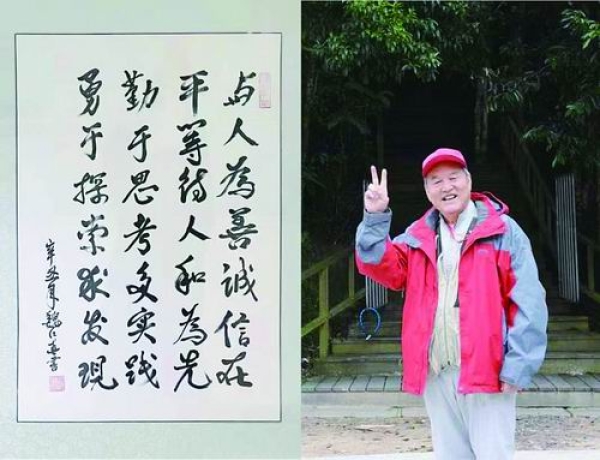 与人為善诚信在
平等待人和為先
勤于思考多实践
勇于探索求发现
辛丑年魏江春书